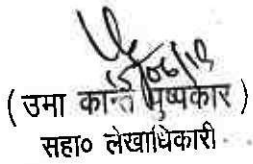 15/06/19
( उमा कान्त पुष्पकार )
सहा० लेखाधिकारी